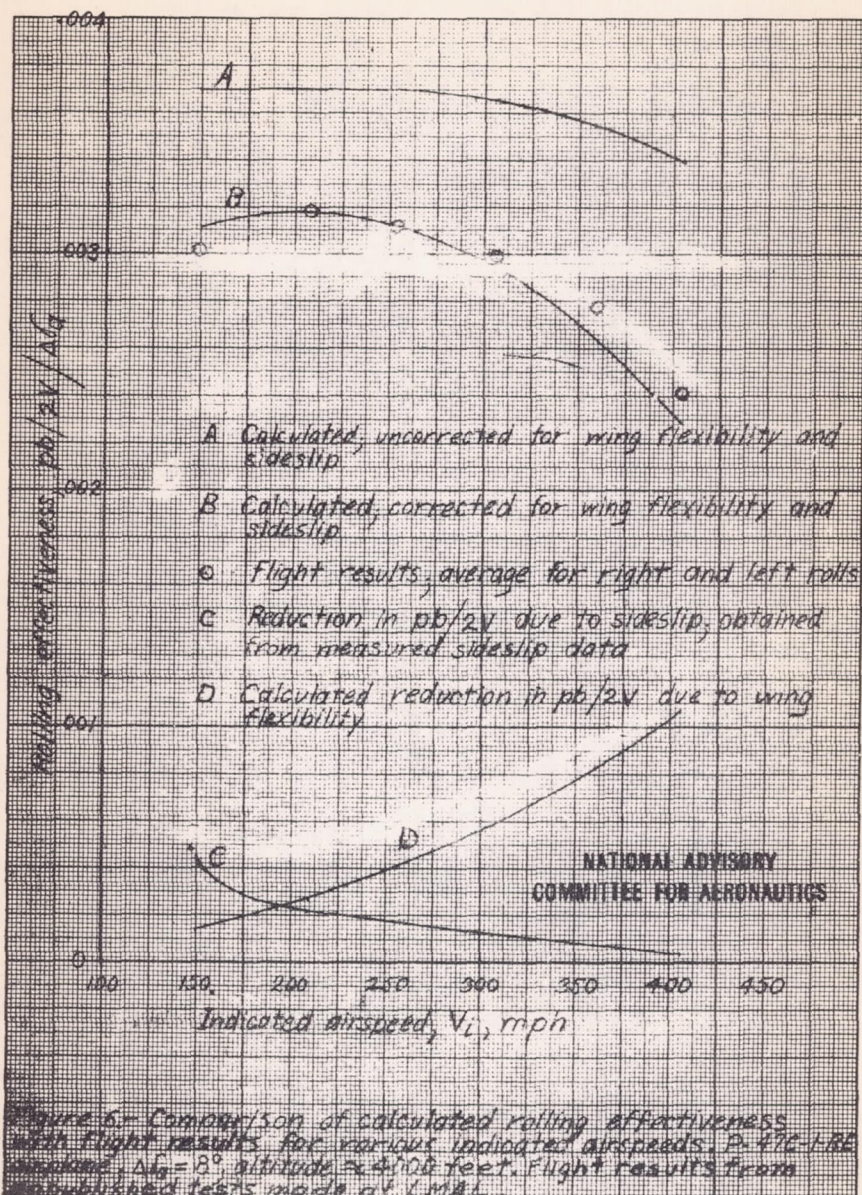 .004
A
B
.003
Rolling effectiveness, pb/2V/Δδa
A Calculated, uncorrected for wing flexibility and
sideslip
.002
B Calculated, corrected for wing flexibility and
sideslip
o Flight results, average for right and left rolls
C Reduction in pb/2V due to sideslip, obtained
from measured sideslip data
D Calculated reduction in pb/2V due to wing
flexibility
.001
D
C
NATIONAL ADVISORY
COMMITTEE FOR AERONAUTICS
0
100 150 200 250 300 350 400 450
Indicated airspeed, Vi, mph
Figure 6.- Comparison of calculated rolling effectiveness
with flight results for various indicated airspeeds. P-47C-1-RE
airplane, Δδa = 8°, altitude ≈ 4000 feet. Flight results from
unpublished tests made at LMAL.